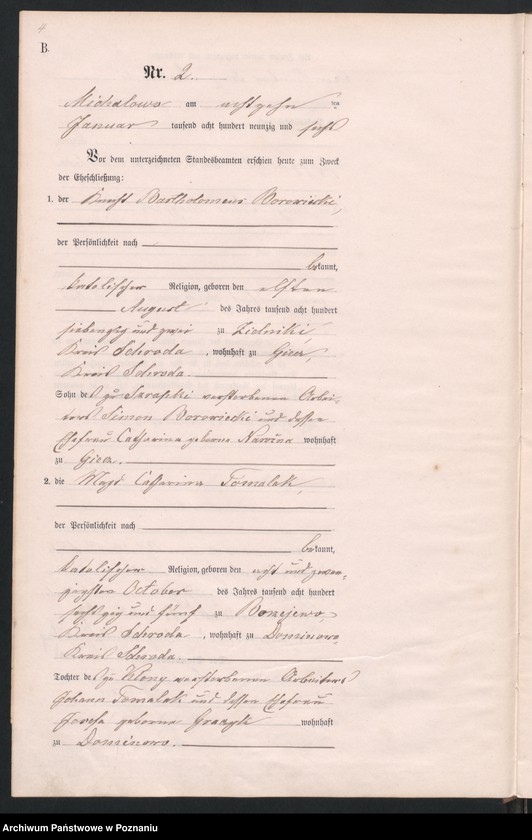 4
B.
Nr. 2.
Michalowo am achtzehn ten
Januar tausend acht hundert neunzig und sechs
Vor dem unterzeichneten Standesbeamten erschien heute zum Zweck
der Eheschließung:
1. der Knecht Bartholomeus Borowiecki,
der Persönlichkeit nach
bekannt,
katolischer Religion, geboren den elften
August des Jahres tausend acht hundert
siebenzig und zwei zu
Kreis Schroda, wohnhaft zu Giecz,
Kreis Schroda.
Sohn des zu verstorbenen Arbei-
ters Simon Borowiecki und dessen
Ehefrau Catharina geborne wohnhaft
zu Giecz.
2. die Magd Catharina Tomalak,
der Persönlichkeit nach
bekannt,
katolischer Religion, geboren den acht und zwan-
zigsten October des Jahres tausend acht hundert
sechszig und fünf zu
Kreis Schroda, wohnhaft zu Dominowo,
Kreis Schroda.
Tochter des zu Klony verstorbenen Arbeiters
Johann Tomalak und dessen Ehefrau
Josefa geborne wohnhaft
zu Dominowo.
Archiwum Państwowe w Poznaniu